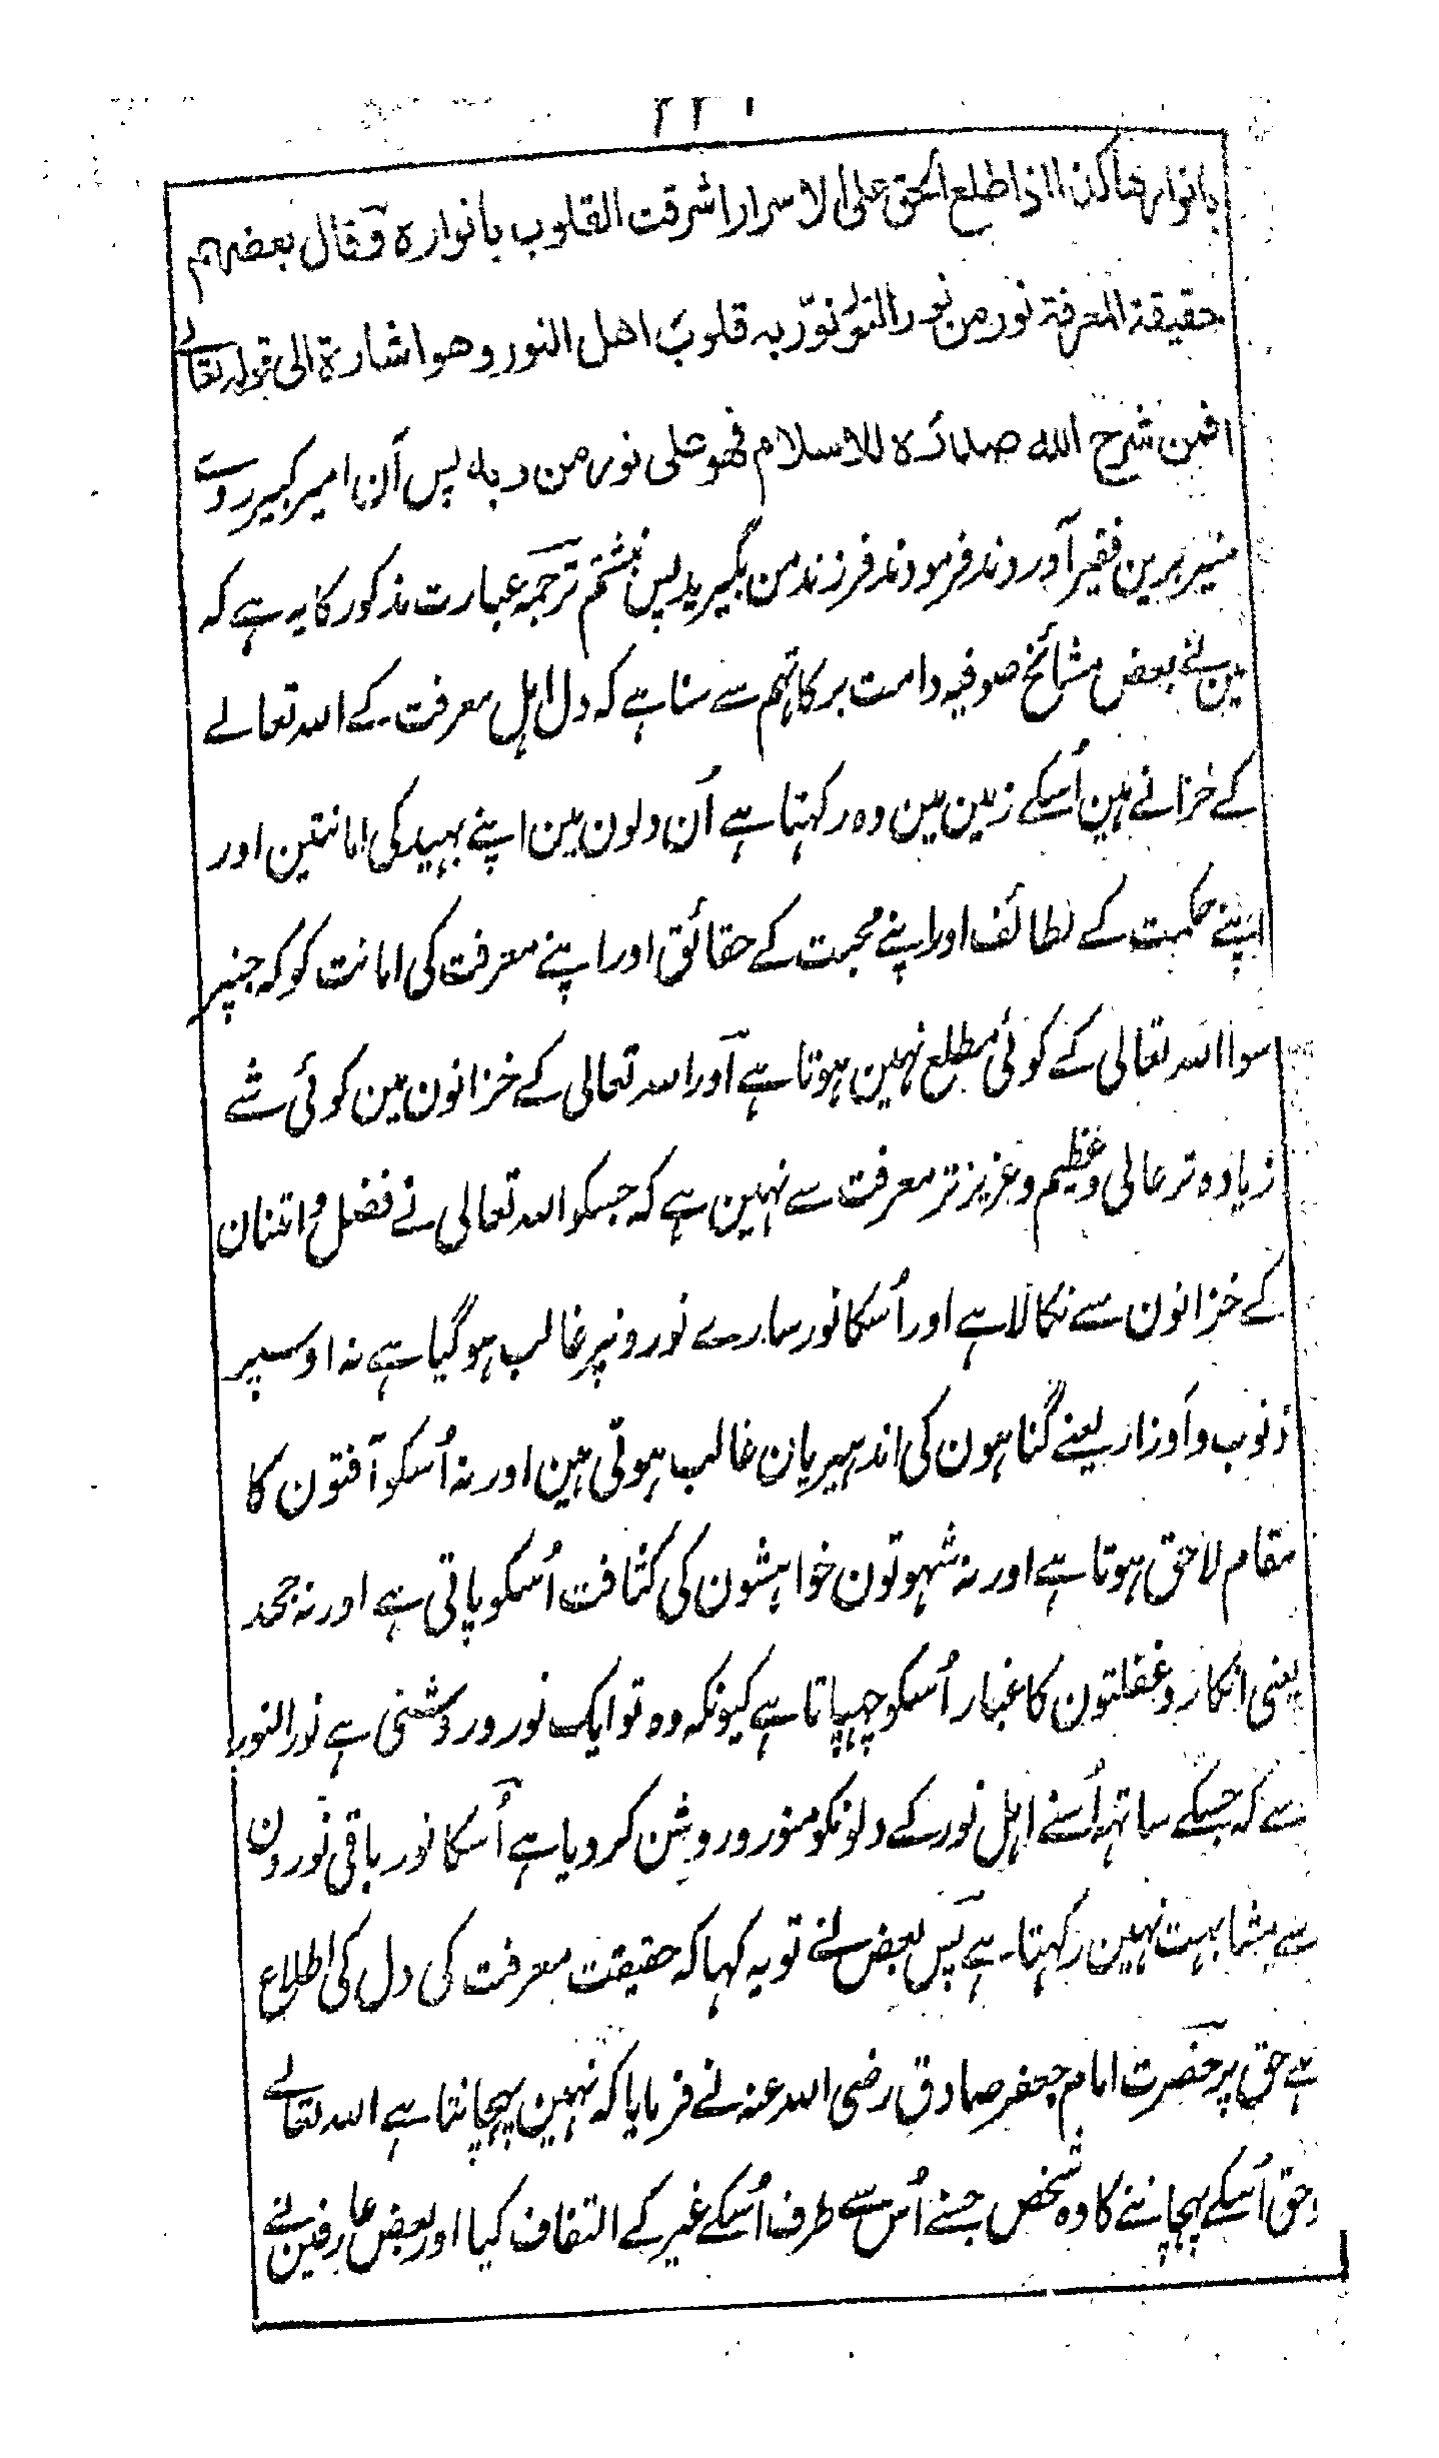 بانوارها كذا اذا طلع الحق على الاسرار اشرقت القلوب بانواره وقال بعضهم
حقيقة المعرفة نور من نور النور نوّر به قلوب اهل النور وهو اشارة الى قوله تعالے
افمن شرح الله صدره للاسلام فهو على نور من ربه پس آن امیر کبیر روے
منیر برین فقیر آوردند فرمودند فرزند من بگیرید پس نبشتم ترجمہ عبارت مذکور کا یہ ہے کہ
مین نے بعض مشائخ صوفیہ دامت برکاتہم سے سنا ہے کہ دل اہل معرفت کے اللہ تعالے
کے خزانے ہین اُسکے زمین مین وہ رکہتا ہے اُن دلون مین اپنے بہید کی امانتین اور
اپنے حکمت کے لطائف اور اپنے محبت کے حقائق اور اپنے معرفت کی امانت کو کہ جنپر
سوا اللہ تعالی کے کوئی مطلع نہین ہوتا ہے اور اللہ تعالی کے خزانون مین کوئی شے
زیادہ تر عالی و عظیم و عزیز تر معرفت سے نہین ہے کہ جسکو اللہ تعالی نے فضل و امتنان
کے خزانون سے نکالا ہے اور اُسکا نور سارے نورونپر غالب ہوگیا ہے نہ اوسپر
ذنوب و اوزار یعنے گناہون کی اندہیریان غالب ہوتی ہین اور نہ اُسکو آفتون کا
مقام لاحق ہوتا ہے اور نہ شہوتون خواہشون کی کثافت اُسکو پاتی ہے اور نہ جحد
یعنی انکار و غفلتون کا غبار اُسکو چہپاتا ہے کیونکہ وہ تو ایک نور و روشنی ہے نور النور
سے کہ جسکے ساتہہ اُسنے اہل نور کے دلونکو منور و روشن کر دیا ہے اُسکا نور باقی نورون
سے مشابہت نہین رکہتا ہے پس بعض نے تو یہ کہا کہ حقیقت معرفت کی دل کی اطلاع
ہے حق پر حضرت امام جعفر صادق رضی اللہ عنہ نے فرمایا کہ نہین پہچانتا ہے اللہ تعالے
حق اُسکے پہچاننے کا وہ شخص جسنے اُس سے طرف اُسکے غیر کے التفات کیا اور بعض عارفین نے